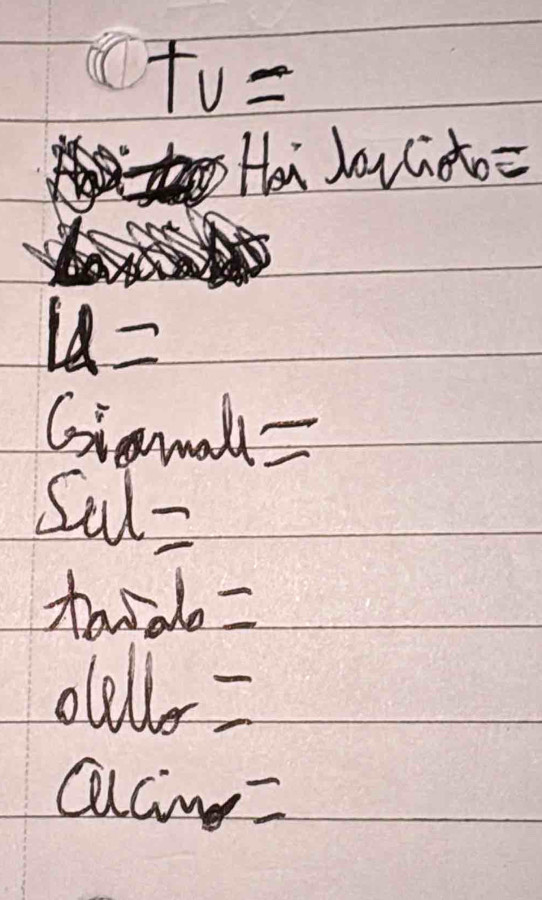 Tu =
Hai lasciato =
Il =
Giornale =
Sul =
tavolo =
della =
Cucina =